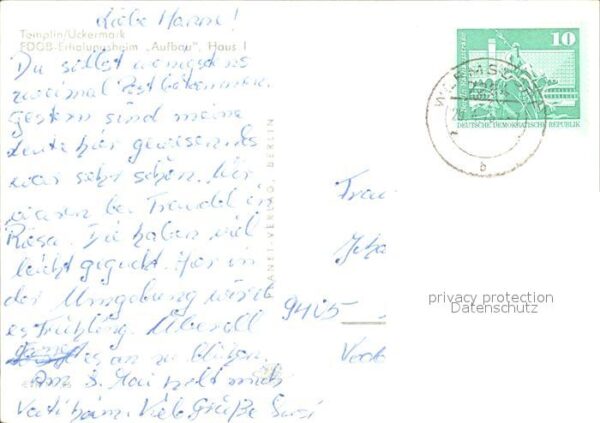 Liebe Hanne!
Templin/Uckermark
FDGB-Erholungsheim „Aufbau", Haus I
Du sollst wenigstens
zweimal Post bekommen.
Gestern sind meine
Leute hier gewesen. Es
war sehr schön. Wir
waren bei in
Riesa. Die haben viel
leicht geguckt. Hier in
der Umgebung wird
es Frühling. Überall
es an zu blühen.
Am 3. Mai holt mich
Vati heim. Viele Grüße Susi
PLANET-VERLAG BERLIN
10
DEUTSCHE DEMOKRATISCHE REPUBLIK
b
Frau
9405
privacy protection
Datenschutz